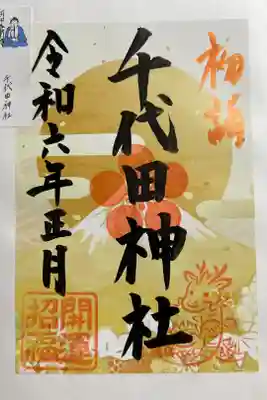 初詣
千代田神社
令和六年正月
開運
招福
千代田神社